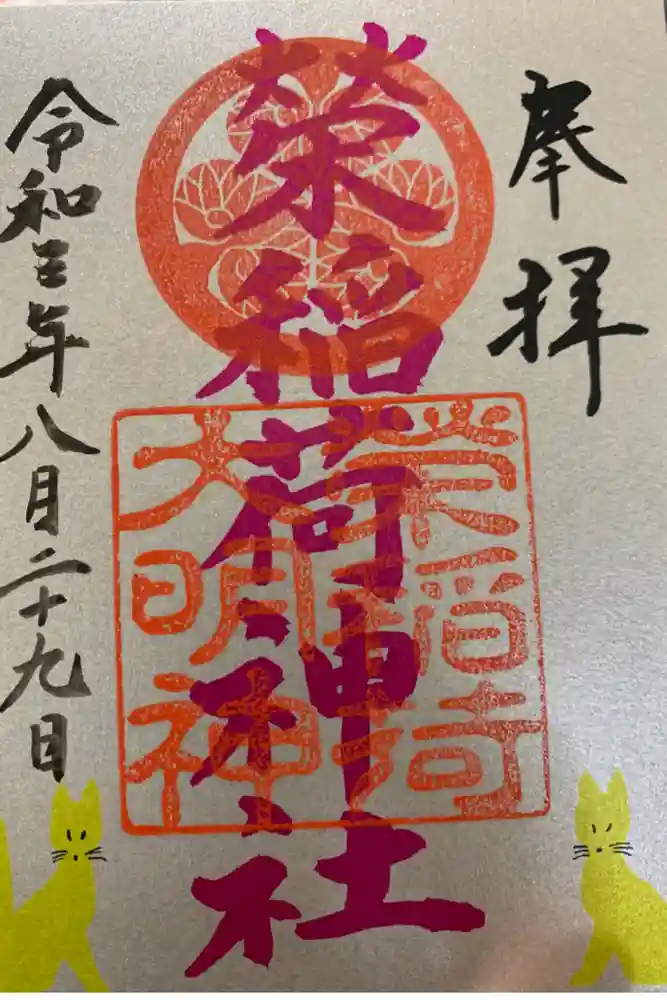 奉拝
榮稲荷神社
榮稲荷
大明神
令和三年八月二十九日